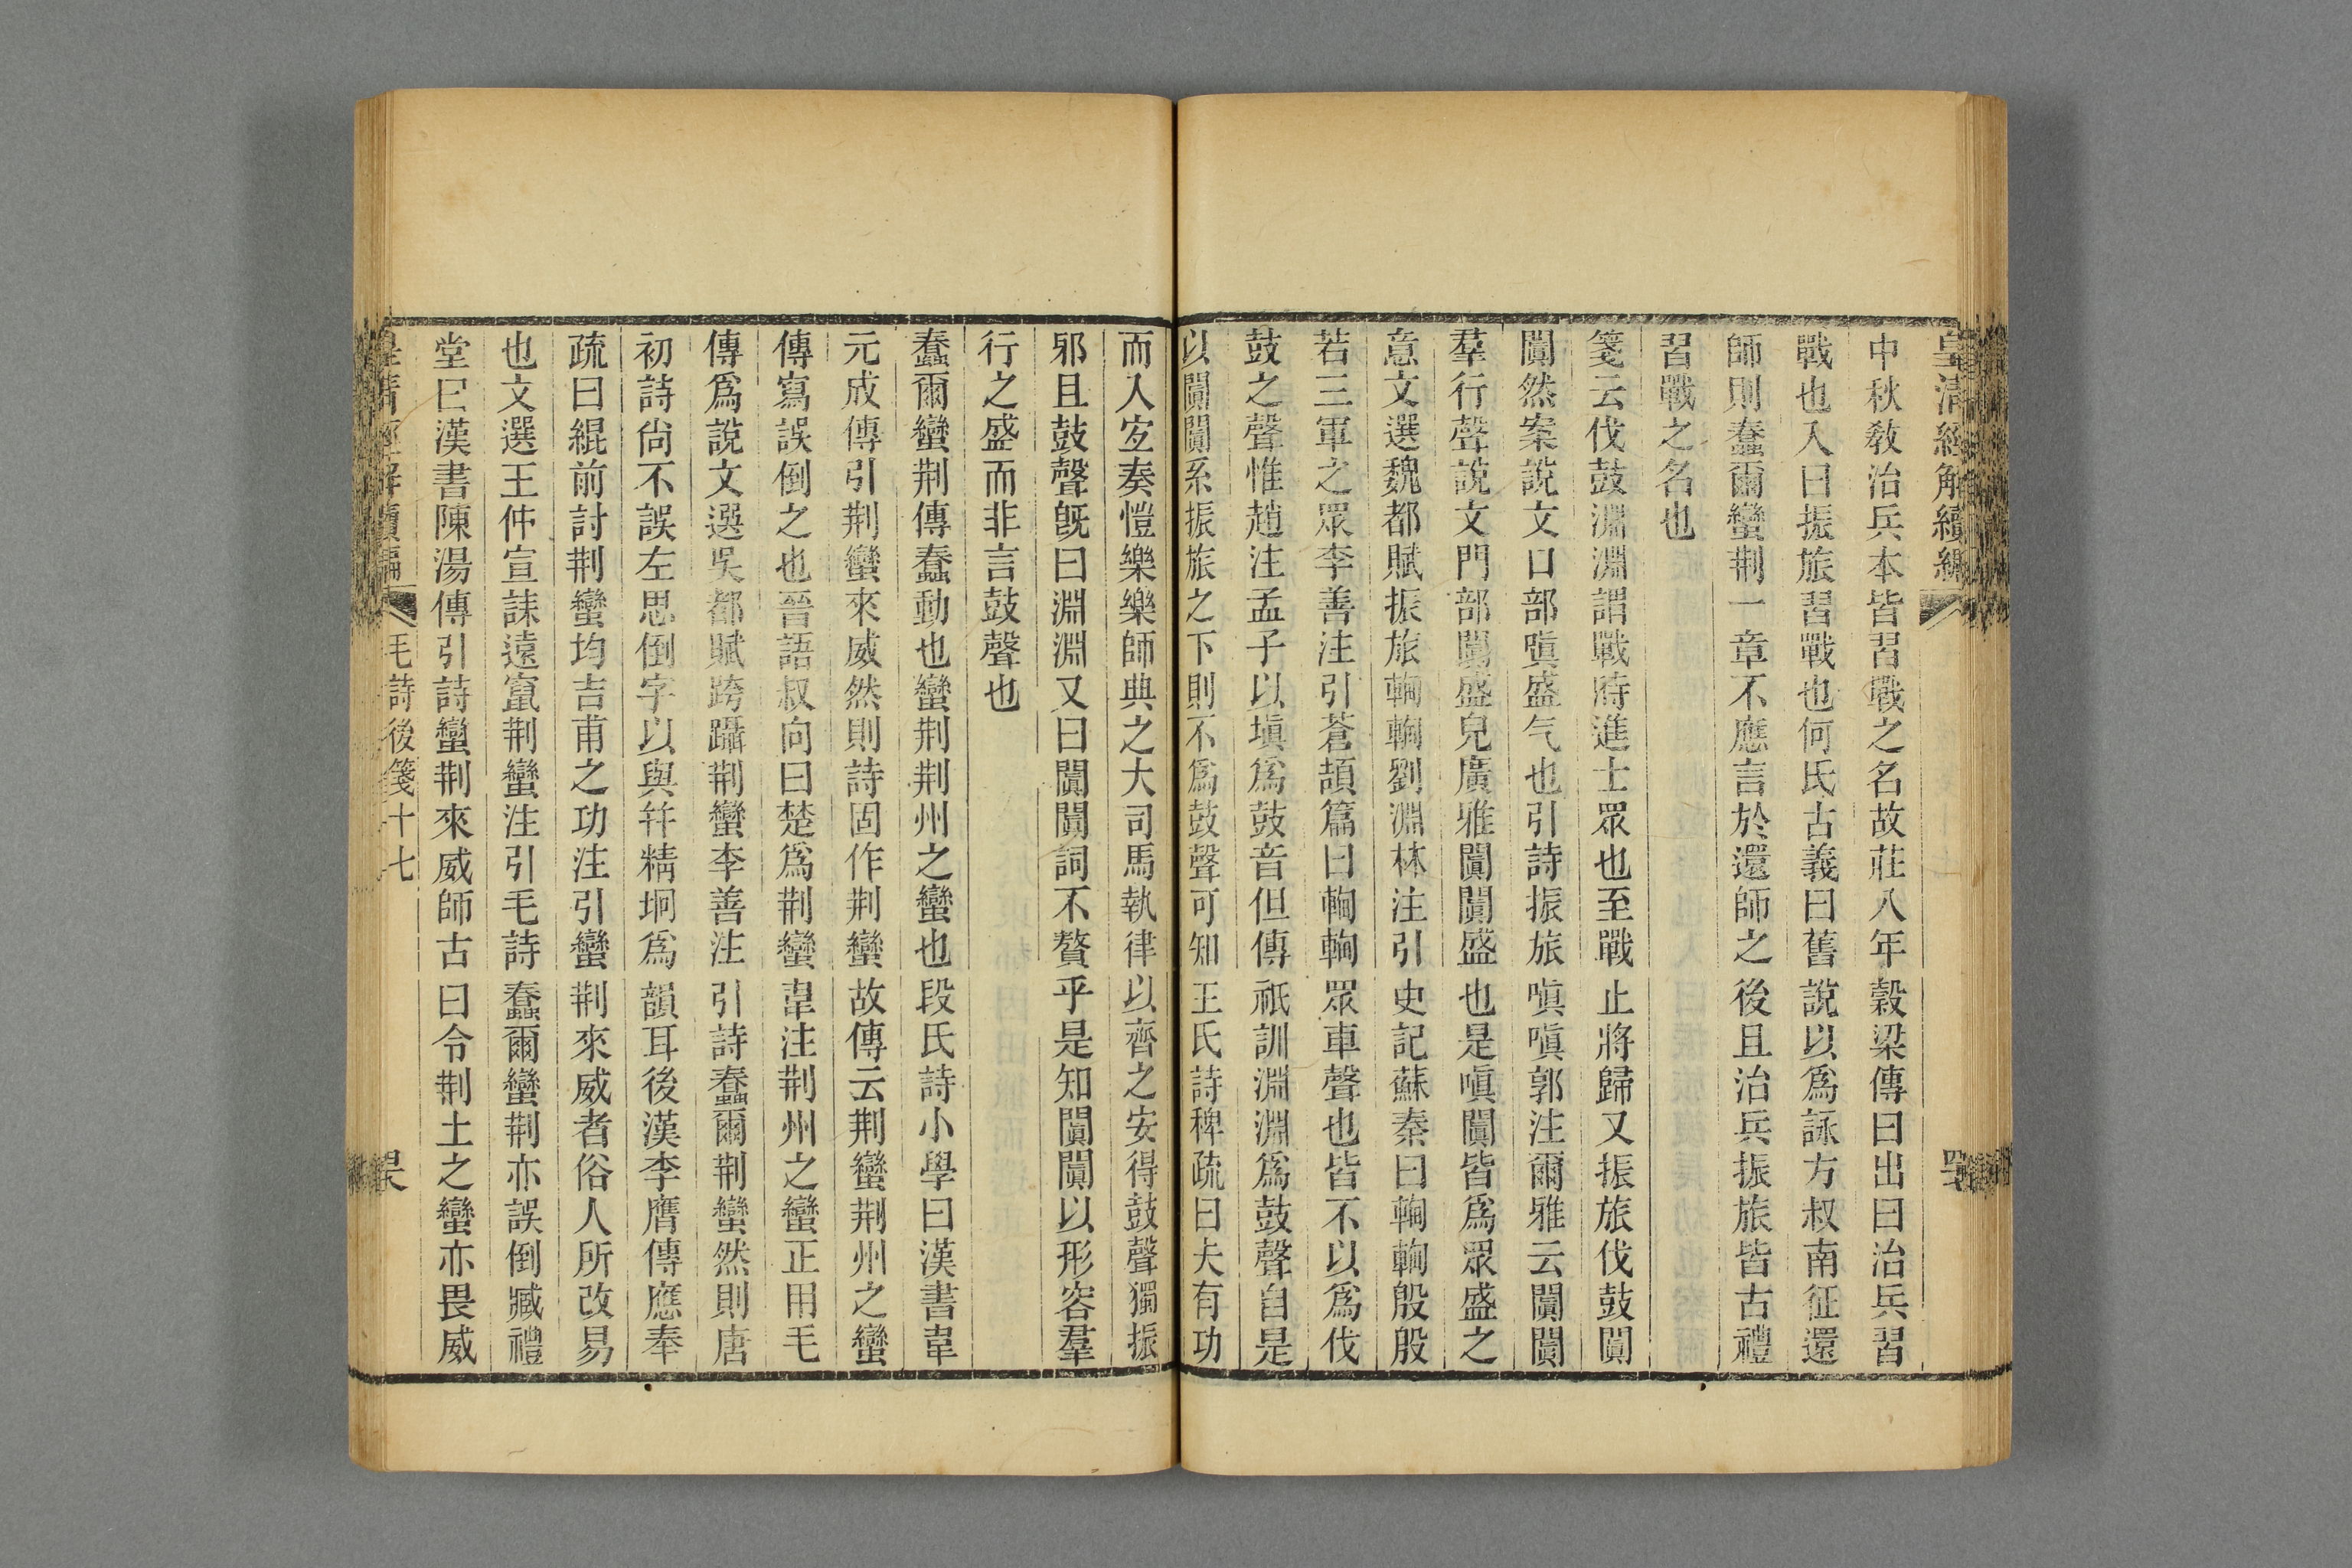 皇清經解續編
中秋敎治兵本皆習戰之名故莊八年穀梁傳曰出曰治兵習
戰也入曰振旅習戰也何氏古義曰舊說以爲詠方叔南征還
師則蠢爾蠻荆一章不應言於還師之後且治兵振旅皆古禮
習戰之名也
箋云伐鼓淵淵謂戰時進士眾也至戰止將歸又振旅伐鼓闐
闐然案說文口部嗔盛气也引詩振旅嗔嗔郭注爾雅云闐闐
羣行聲說文門部闐盛皃廣雅闐闐盛也是嗔闐皆爲眾盛之
意文選魏都賦振旅輷輷劉淵林注引史記蘇秦曰輷輷殷殷
若三軍之眾李善注引蒼頡篇曰輷輷眾車聲也皆不以爲伐
鼓之聲惟趙注孟子以塡爲鼓音但傳祇訓淵淵爲鼓聲自是
以闐闐系振旅之下則不爲鼓聲可知王氏詩稗疏曰夫有功
而入宐奏愷樂樂師典之大司馬執律以齊之安得鼓聲獨振
邪且鼓聲旣曰淵淵又曰闐闐詞不贅乎是知闐闐以形容羣
行之盛而非言鼓聲也
蠢爾蠻荆傳蠢動也蠻荆荆州之蠻也段氏詩小學曰漢書韋
元成傳引荆蠻來威然則詩固作荆蠻故傳云荆蠻荆州之蠻
傳寫誤倒之也晉語叔向曰楚爲荆蠻韋注荆州之蠻正用毛
傳爲說文選吳都賦跨躡荆蠻李善注引詩蠢爾荆蠻然則唐
初詩尙不誤左思倒字以與幷精坰爲韻耳後漢李膺傳應奉
疏曰緄前討荆蠻均吉甫之功注引蠻荆來威者俗人所改易
也文選王仲宣誄遠竄荆蠻注引毛詩蠢爾蠻荆亦誤倒臧禮
堂曰漢書陳湯傳引詩蠻荆來威師古曰令荆土之蠻亦畏威
皇淸經解續編 毛詩後箋十七